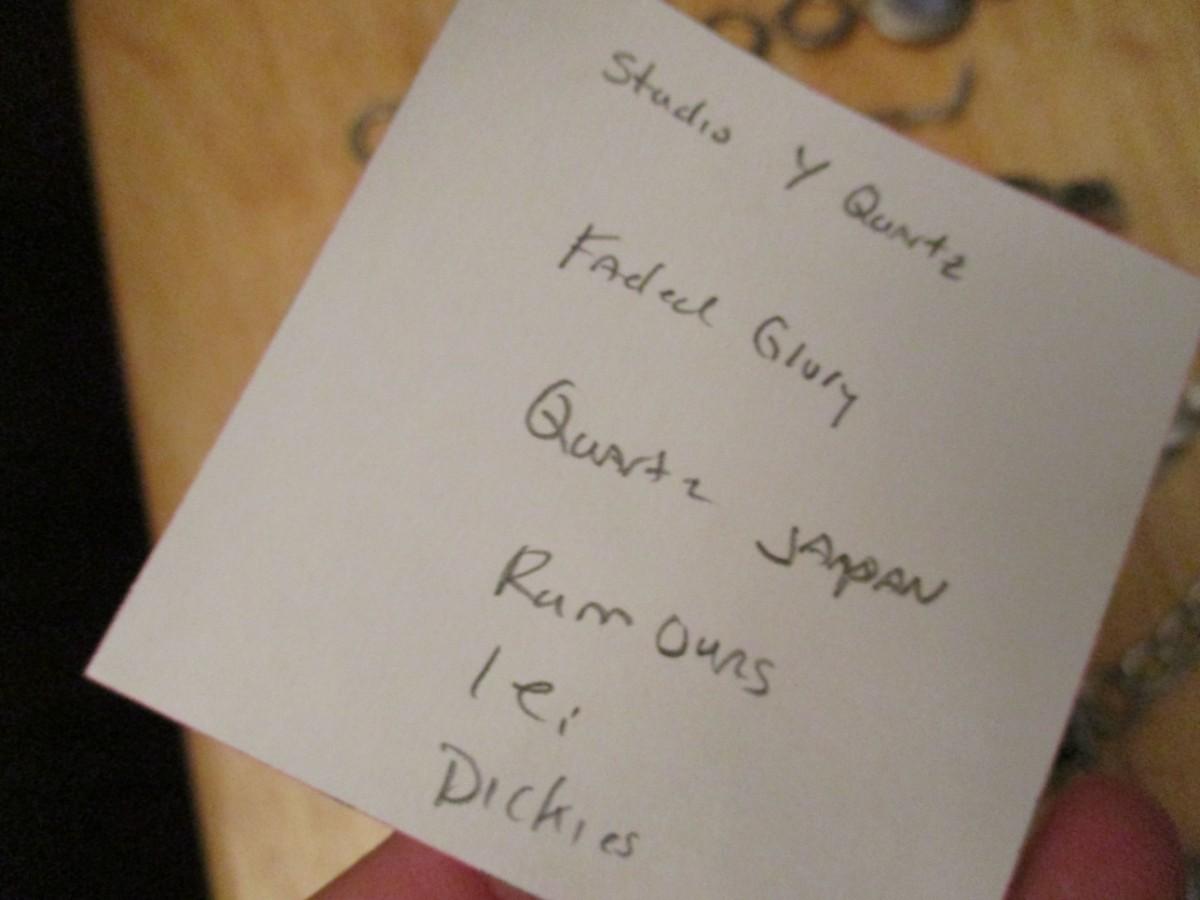 Studio Y Quartz
Faded Glory
Quartz JAPAN
Rum Ours
lei
Dickies